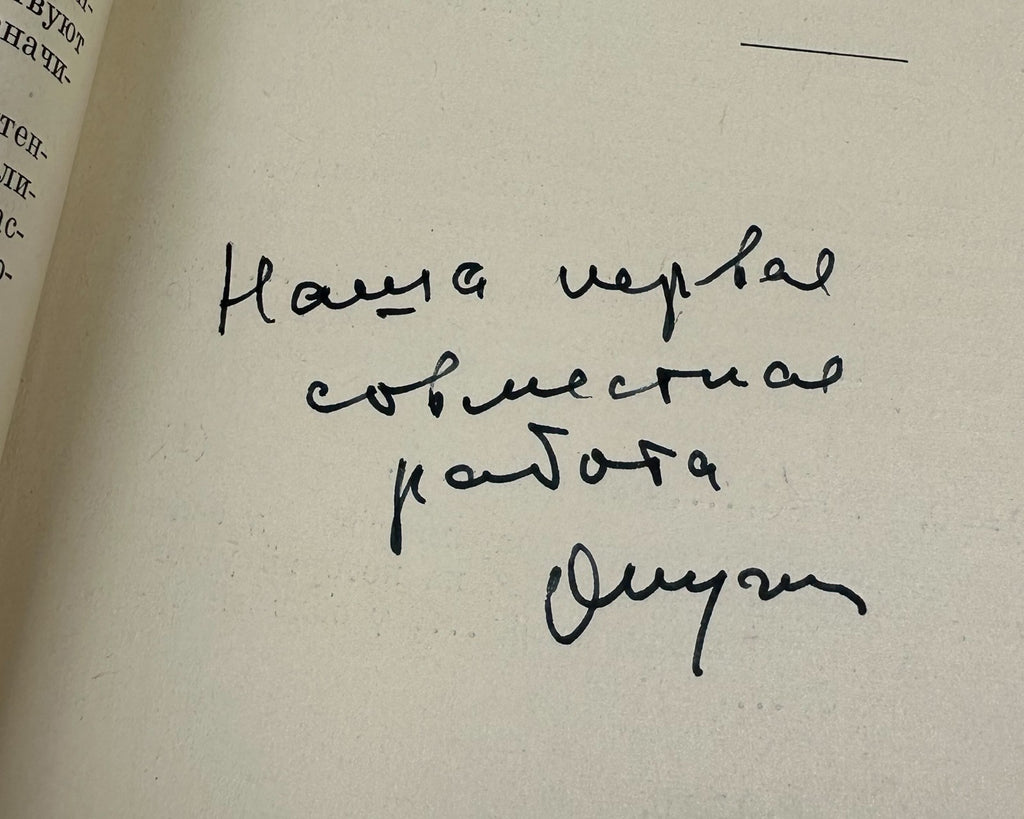 -
вуют
начи-
тен-
ли-
ас-
о-
Наша первая
совместная
работа